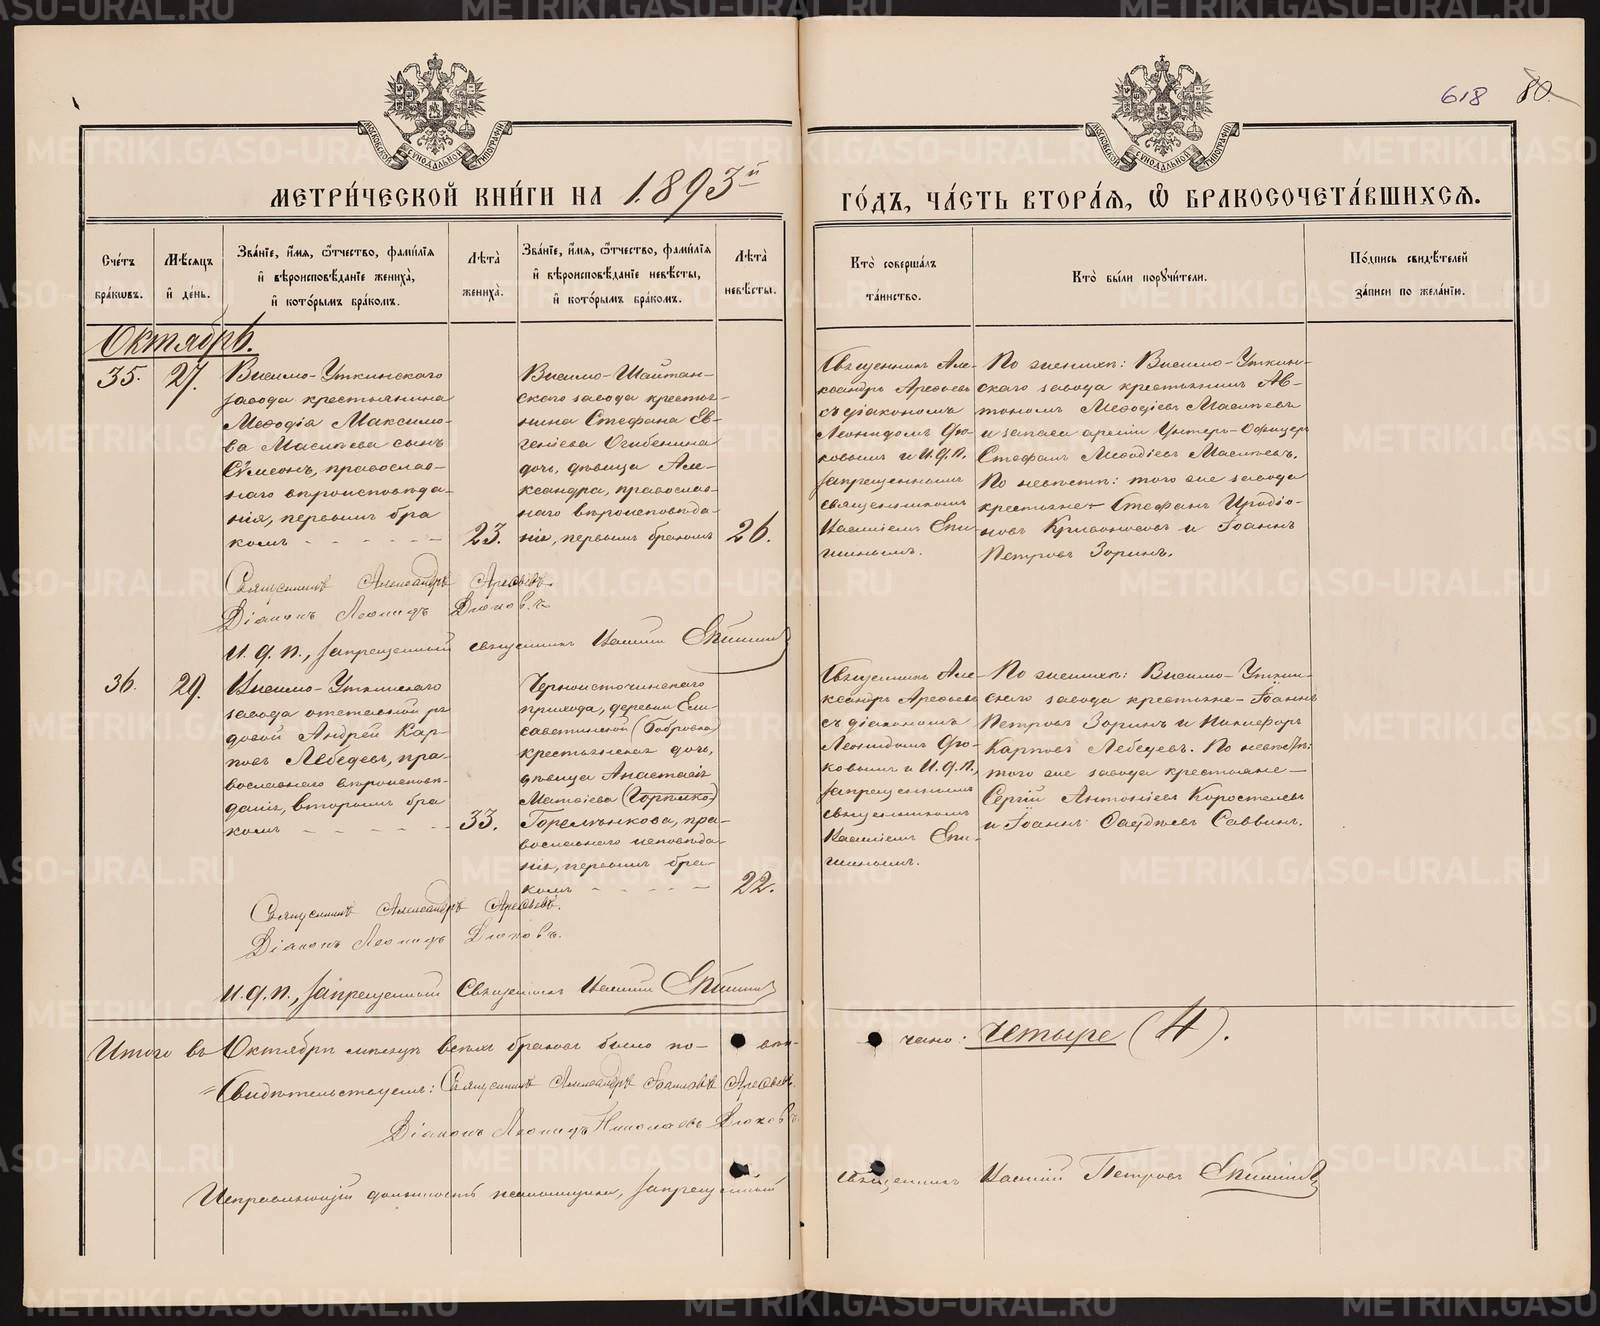 618 80
МОСКОВСКОЙ СѴНОДАЛЬНОЙ ТИПОГРАФІИ
МОСКОВСКОЙ СѴНОДАЛЬНОЙ ТИПОГРАФІИ
МЕТРИ́ЧЕСКОЙ КНИ́ГИ НА 1893й
ГО́ДЪ, ЧА́СТЬ ВТОРА́Я, Ѽ БРАКОСОЧЕТА́ВШИХСЯ.
Сче́тъ бра́кѡвъ.
Мѣ́сяцъ и҆ де́нь.
Зва́нїе, и҆́мя, ѻ҆́тчество, фами́лїя и҆ вѣроисповѣ́данїе жениха̀, и҆ кото́рымъ бра́комъ.
Лѣ́та жениха̀.
Зва́нїе, и҆́мя, ѻ҆́тчество, фами́лїя и҆ вѣроисповѣ́данїе невѣ́сты, и҆ кото́рымъ бра́комъ.
Лѣ́та невѣ́сты.
Кто̀ соверша́лъ та́инство.
Кто̀ бы́ли порꙋчи́тели.
По́дпись свидѣ́телей за́писи по жела́нїю.
Октябрь.
35.
27.
Висимо-Уткинскаго
завода крестьянина
Меѳодія Максимо-
ва Масляева сынъ
Сѵмеонъ, православ-
наго вѣроисповѣда-
нія, первымъ бра
комъ
23.
Висимо-Шайтан-
скаго завода крестья-
нина Стефана Ев-
геніева Огибенина
дочь, дѣвица Але-
ксандра, православ-
наго вѣроисповѣда-
нія, первымъ бракомъ
26.
Священникъ Але-
ксандръ Арефьевъ
съ діакономъ
Леонидомъ Дю-
ковымъ и И.д.п.
запрещеннымъ
священникомъ
Епи-
шинымъ.
По женихѣ: Висимо-Уткин-
скаго завода крестьянинъ Ав-
тономъ Меѳодіевъ Масляевъ
и запаса арміи Унтеръ-Офицеръ
Стефанъ Меѳодіевъ Масляевъ.
По невѣстѣ: того же завода
крестьяне Стефанъ Иродіо-
новъ Кривоносовъ и Іоаннъ
Петровъ Зоринъ.
Священникъ Александръ Арефьевъ.
Діаконъ Леонидъ Дюковъ.
И.д.п., запрещенный священникъ Епишинъ
36.
29.
Висимо-Уткинскаго
завода отставной ря
довой Андрей Кар-
повъ Лебедевъ, пра-
вославнаго вѣроисповѣ-
данія, вторымъ бра
комъ
33.
Черноисточинскаго
прихода, деревни Ели-
саветинской (Бобровка)
крестьянская дочь,
дѣвица Анастасія
Матѳіева
Горемыкова, пра-
вославнаго исповѣда-
нія, первымъ бра-
комъ
22.
Священникъ Але-
ксандръ Арефьевъ
съ діакономъ
Леонидомъ Дю-
ковымъ и И.д.п.,
запрещеннымъ
священникомъ
Епи-
шинымъ.
По женихѣ: Висимо-Уткин-
скаго завода крестьяне Іоаннъ
Петровъ Зоринъ и Никифоръ
Карповъ Лебедевъ. По невѣстѣ:
того же завода крестьяне
Сергій Антоніевъ Коростелевъ
и Іоаннъ Саввинъ.
Священникъ Александръ Арефьевъ.
Діаконъ Леонидъ Дюковъ.
И.д.п., запрещенный Священникъ Епишинъ
Итого въ Октябрѣ мѣсяцѣ всѣхъ браковъ было по- вѣн- чано: четыре (4).
Свидѣтельствуемъ: Священникъ Александръ Іоанновъ Арефьевъ.
Діаконъ Леонидъ Николаевъ Дюковъ.
Исправляющій должность псаломщика, запрещенный священникъ Петровъ Епишинъ
METRIKI.GASO-URAL.RU